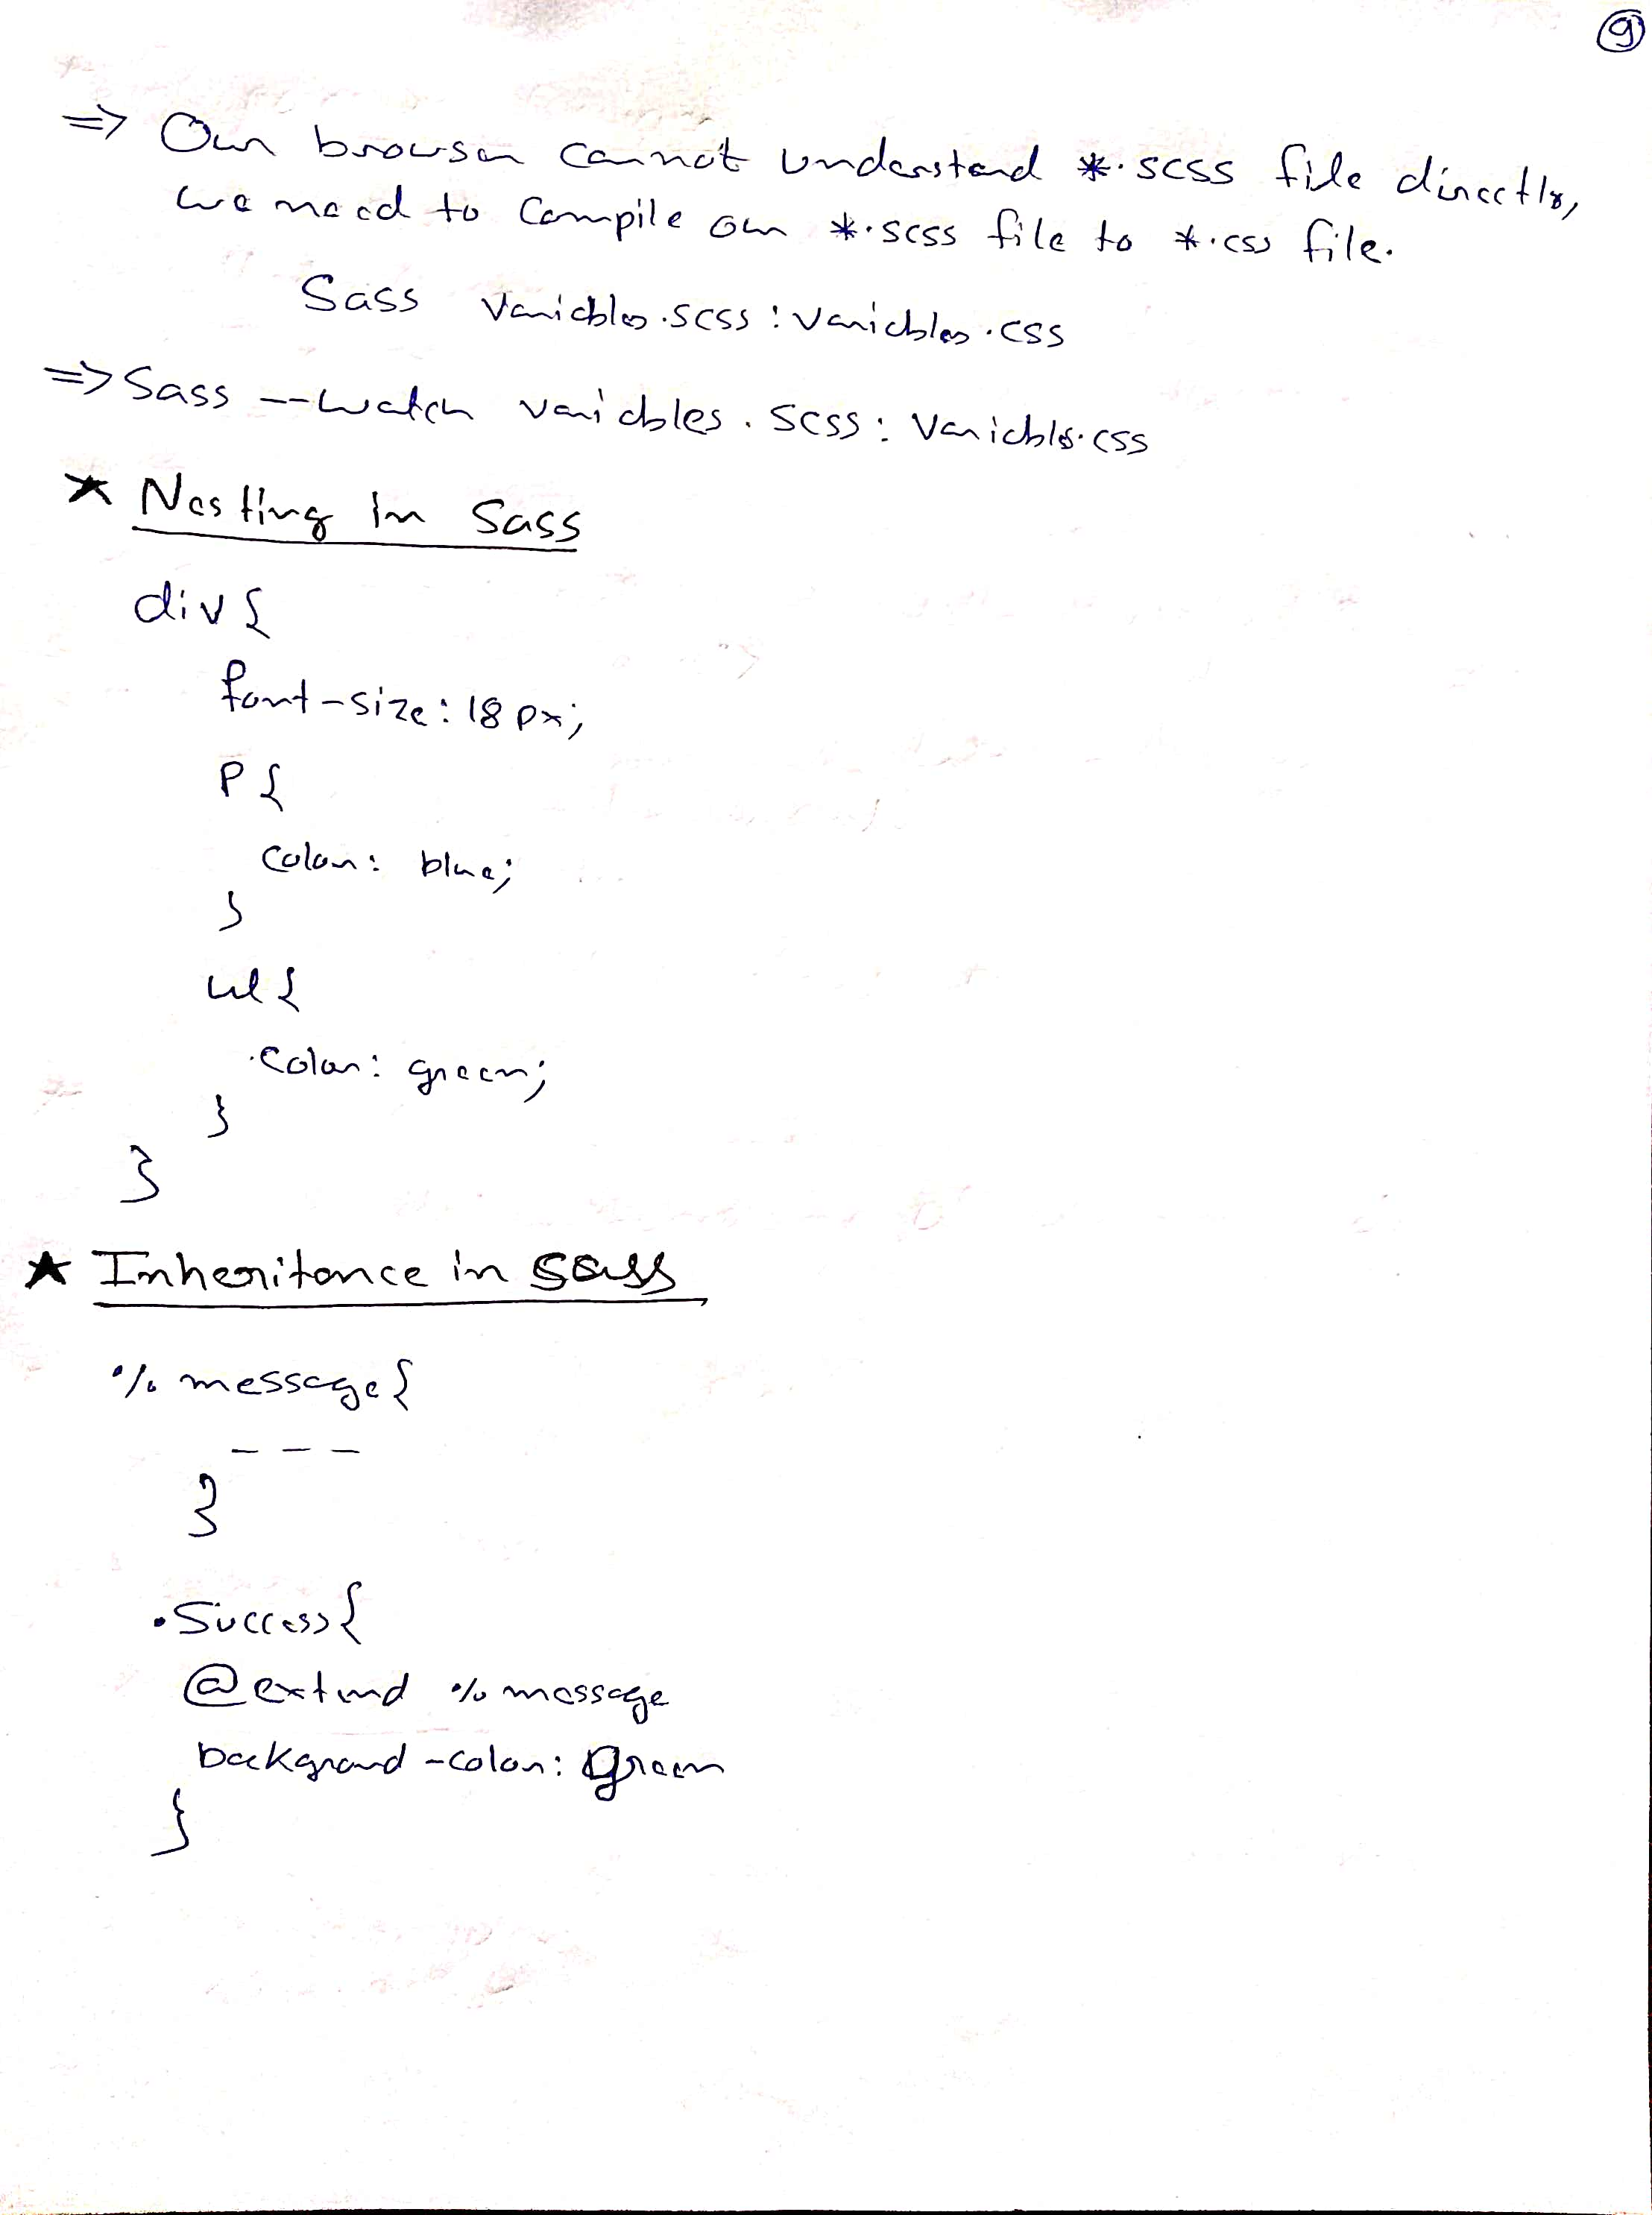 9
⇒ Our browser cannot understand *.scss file directly,
we need to compile our *.scss file to *.css file.
Sass variables.scss : variables.css
⇒ Sass --watch variables.scss : variables.css
★ Nesting in Sass
div {
font-size: 18px;
P {
color: blue;
}
ul {
color: green;
}
}
★ Inheritance in sass
% message {
- - -
}
.Success {
@extend % message
background-color: green
}